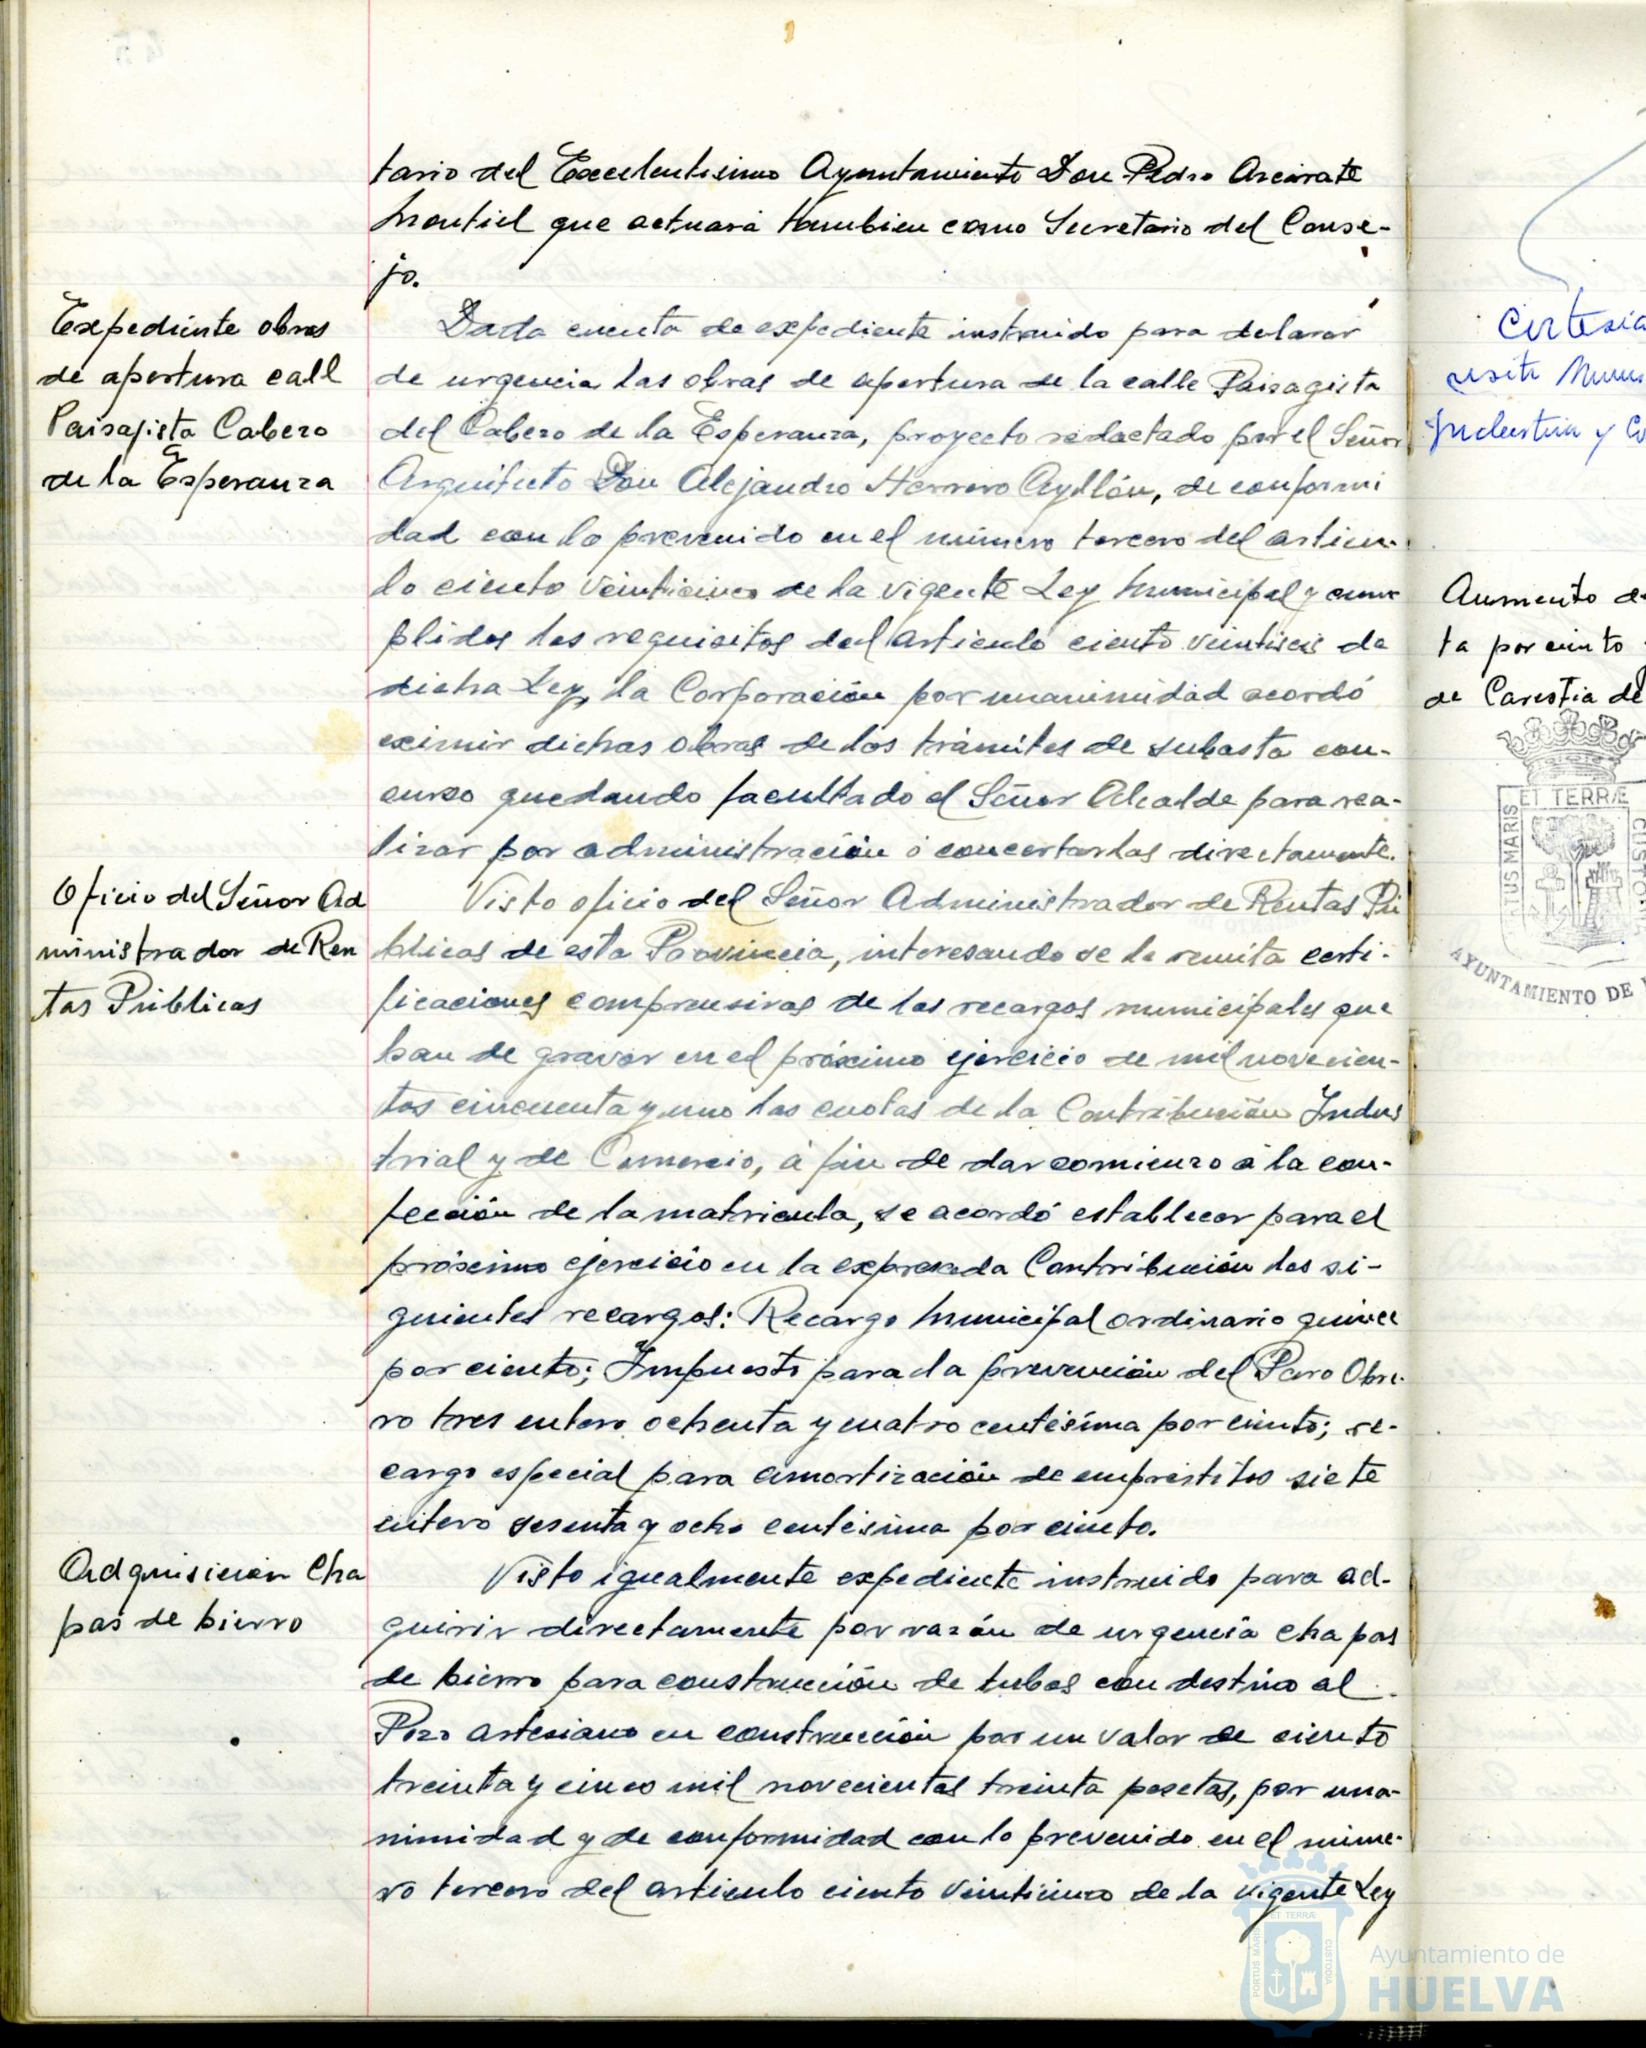 tario del Excelentisimo Ayuntamiento Don Pedro Azcárate
Montiel que actuará tambien como Secretario del Conse-
jo.
Expediente obras
de apertura call
Paisajista Cabezo
de la Esperanza
Dada cuenta de expediente instruido para delarar
de urgencia las obras de apertura de la calle Paisagista
del Cabezo de la Esperanza, proyecto redactado por el Señor
Arquitecto Don Alejandro Herrero Ayllón, de conformi
dad con lo prevenido en el número tercero del articu-
lo ciento veinticinco de la vigente Ley Municipal y cum
plidos los requisitos del articulo ciento veintiseis de
dicha Ley, la Corporación por unanimidad acordó
eximir dichas obras de los trámites de subasta con-
curso quedando facultado el Señor Alcalde para rea-
lizar por administración ó concertarlas directamente.
Oficio del Señor Ad
ministrador de Ren
tas Públicas
Visto oficio del Señor Administrador de Rentas Pú
blicas de esta Provincia, interesando se le remita certi-
ficaciones comprensivas de los recargos municipales que
han de gravar en el próximo ejercicio de mil novecien-
tos cincuenta y uno las cuotas de la Contribución Indus
trial y de Comercio, á fin de dar comienzo á la con-
fección de la matricula, se acordó establecer para el
próximo ejercicio en la expresada Contribución los si-
guientes recargos: Recargo Municipal ordinario quince
por ciento; Impuesto para la prevención del Paro Obre-
ro tres entero ochenta y cuatro centésima por ciento; re-
cargo especial para amortización de empréstitos siete
entero sesenta y ocho centésima por ciento.
Adquisición Cha
pas de hierro
Visto igualmente expediente instruido para ad-
quirir directamente por razón de urgencia chapas
de hierro para construcción de tubos con destino al
Pozo artesiano en construcción por un valor de ciento
treinta y cinco mil novecientas treinta pesetas, por una-
nimidad y de conformidad con lo prevenido en el núme-
ro tercero del articulo ciento veinticinco de la vigente Ley
Cortesia
visita
Industria y
Aumento de
ta por ciento
de Carestia de
ET TERRÆ
TUS MARIS
CUSTODIA
AYUNTAMIENTO DE
ET TERRÆ
PORTUS MARIS
CUSTODIA
Ayuntamiento de
HUELVA